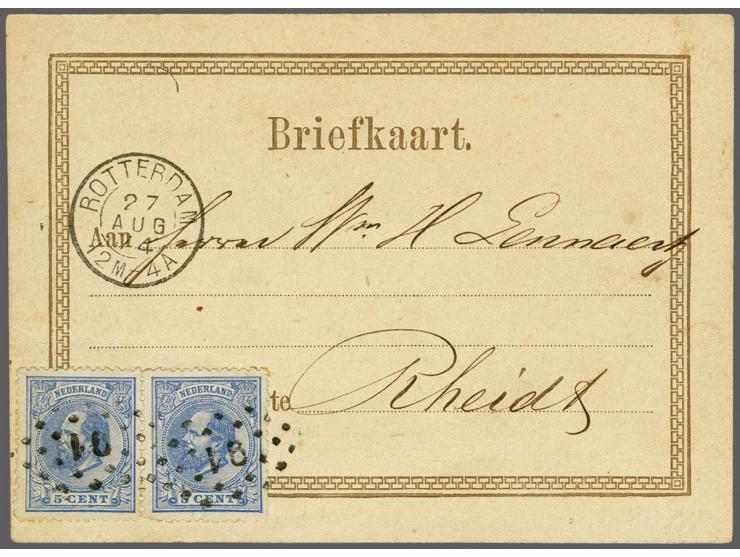 Briefkaart.
ROTTERDAM
27
AUG
74
12M-4A
Aan Herrn Wm H Lennartz
te Rheidt
NEDERLAND NEDERLAND
91 91
5 CENT 5 CENT